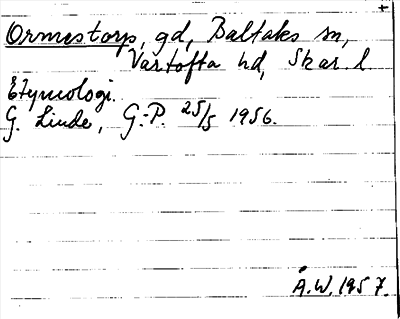 Ormestorp, gd, Baltaks sn,
Vartofta hd, Skar. l.
Etymologi.
G. Linde, G.-P. 25/5 1956.
Å.W. 1957.